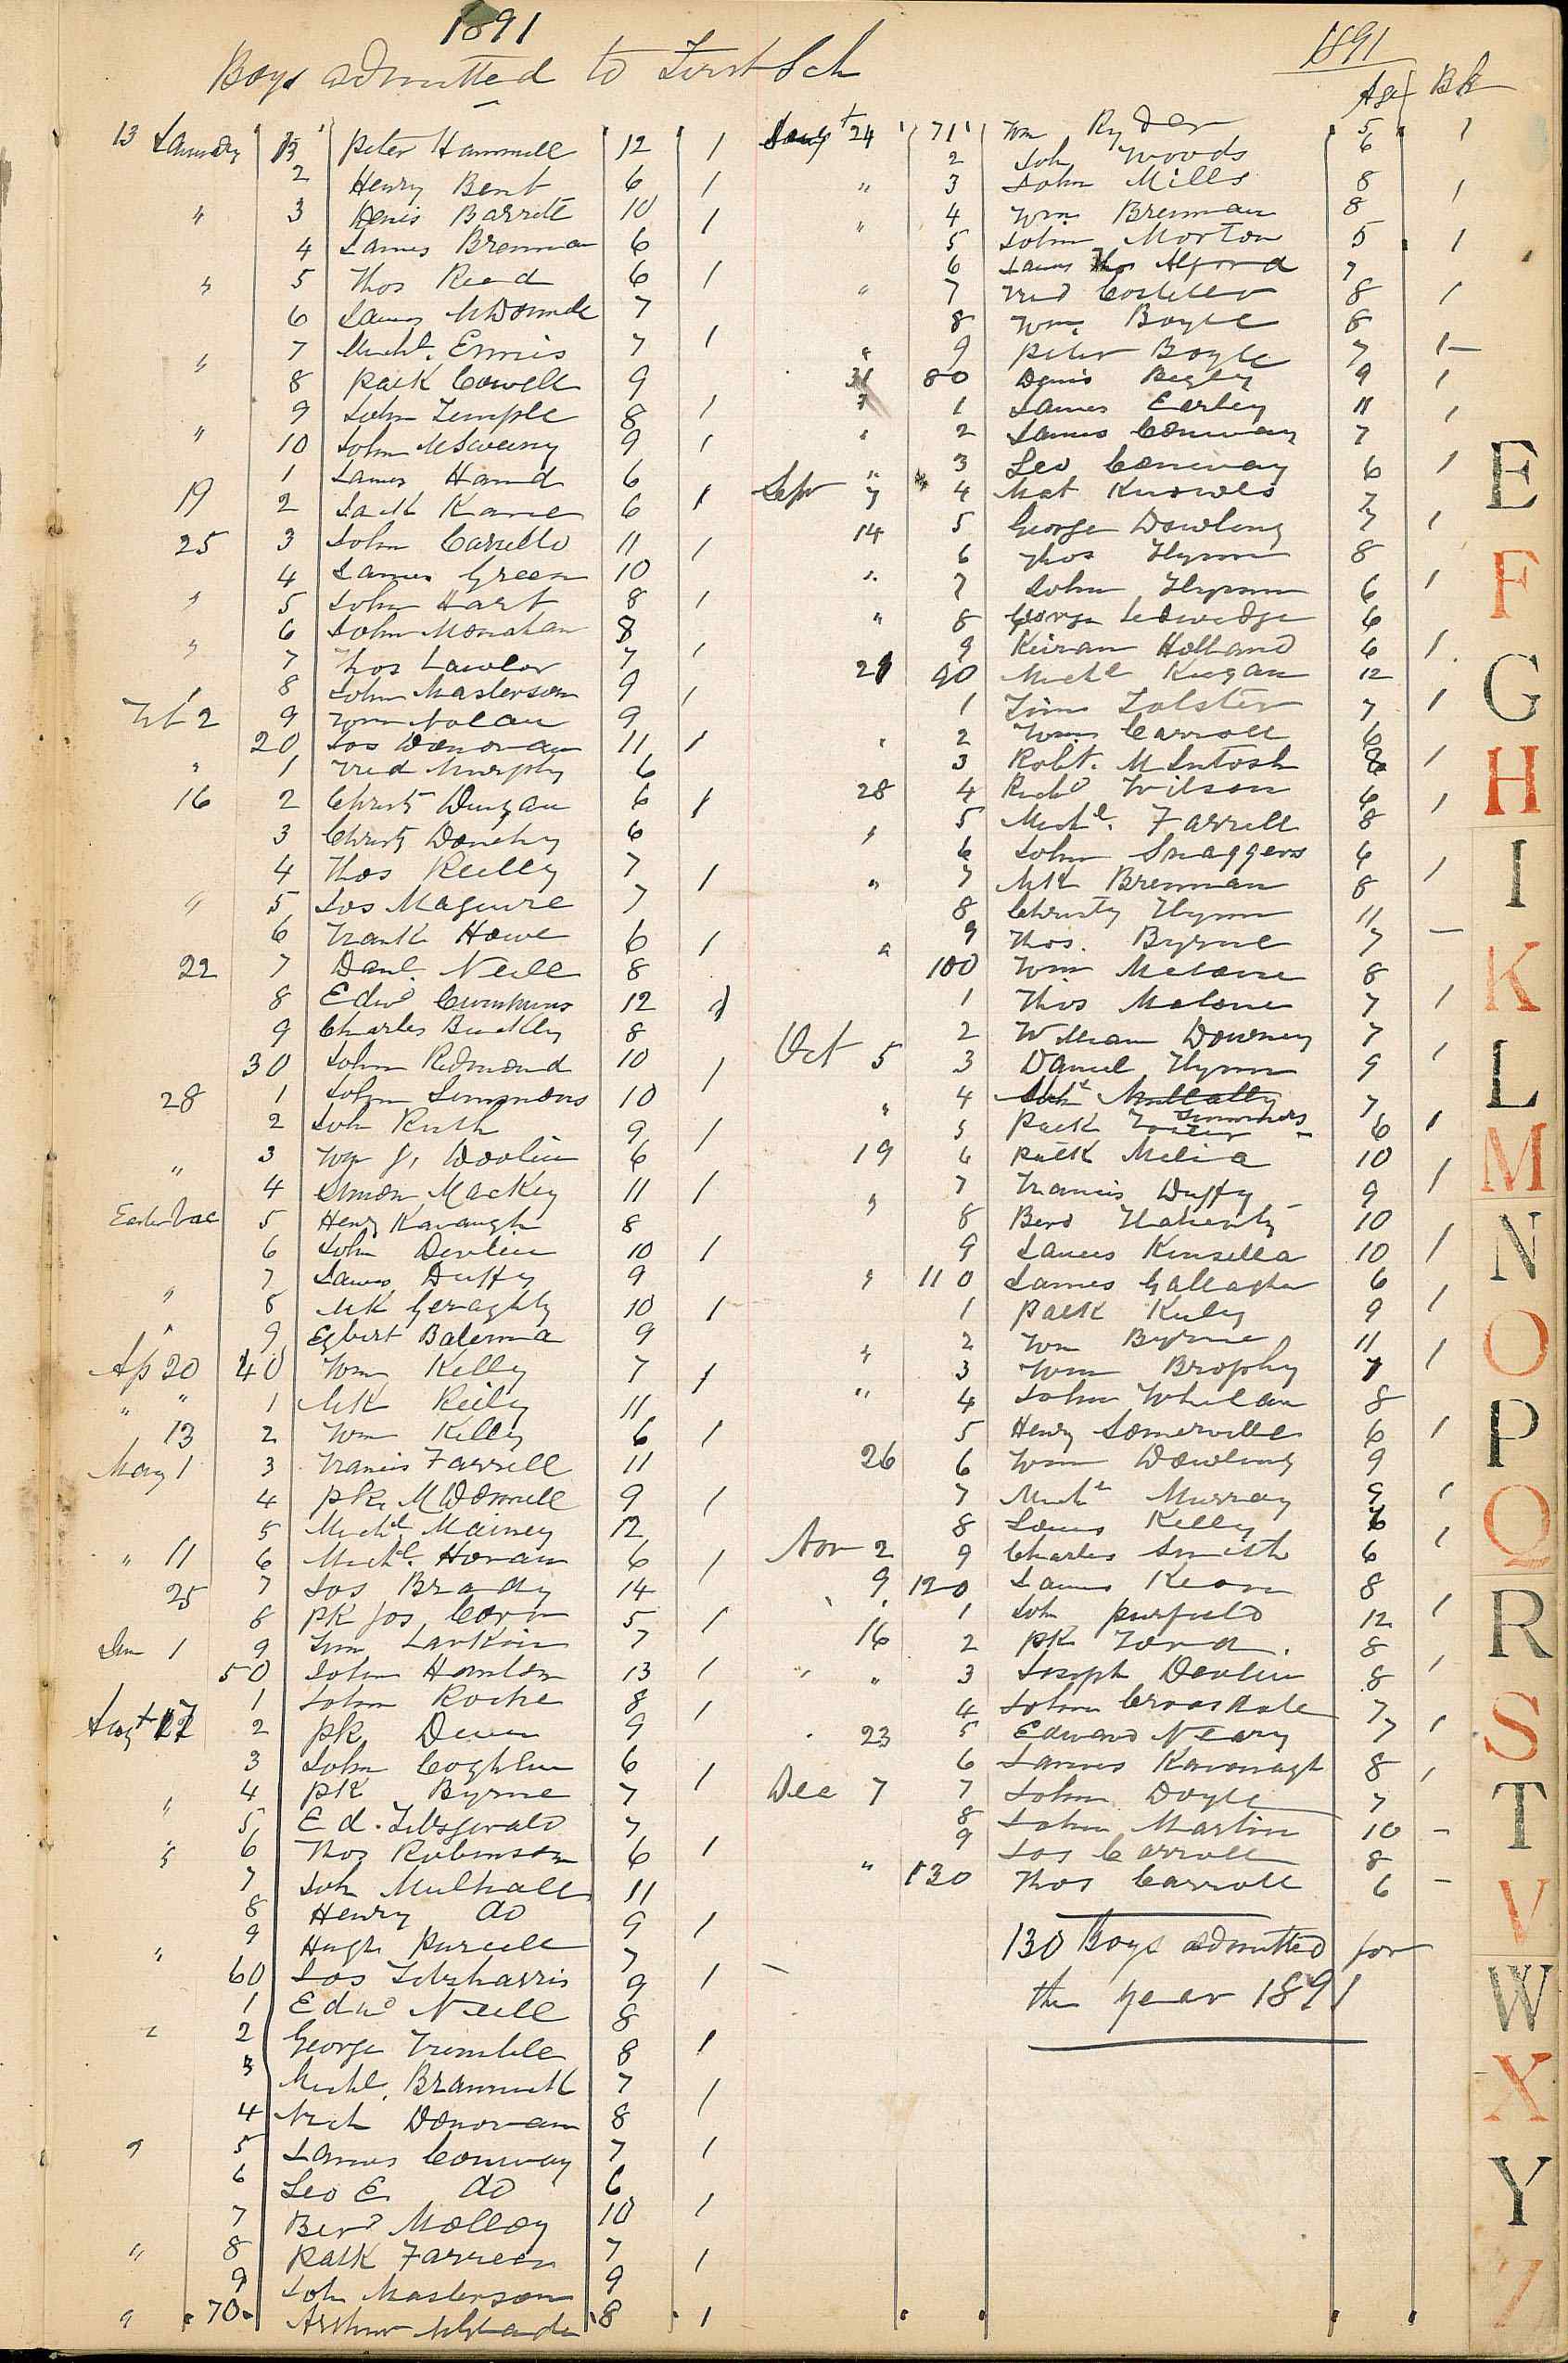 1891
Boys admitted to First Sch
13 January 13 Peter Hammill 12 1
2 Henry Bent 6 1
" 3 Denis Barrett 10 1
4 James Brennan 6
" 5 Thos Reed 6 1
6 James McDonnell 7
" 7 Michl. Ennis 7 1
8 Patk Cowell 9
9 John Temple 8 1
" 10 John McSweeny 9 1
1 James Hand 6
19 2 Jack Kane 6 1
25 3 John Carvello 11 1
4 James Green 10
" 5 John Hart 8 1
6 John Monahan 8
" 7 Thos Lawlor 7 1
8 John Masterson 9 1
Feb 2 9 Wm Nolan 9
20 Jos Donovan 11 1
" 1 Fred Murphy 6
16 2 Christy Dungan 6 1
3 Christy Donohy 6
4 Thos Reilly 7 1
" 5 Jos Maguire 7
6 Frank Howe 6 1
22 7 Danl. Neill 8
8 Edwd Cummins 12 1
9 Charles Buckley 8
30 John Redmond 10 1
28 1 John Simmons 10
2 Joh Ruth 9 1
" 3 Wm J. Doolin 6
4 Simon Mackey 11 1
Easter Vac 5 Henry Kavanagh 8
6 John Devlin 10 1
" 7 James Duffy 9
8 Mk Geraghty 10 1
" 9 Egbert Bateman 9
Ap 20 40 Wm Kelly 7 1
" " 1 Mk Reily 11
" 13 2 Wm Kelly 6 1
May 1 3 Francis Farrell 11
4 Pk. McDonnell 9 1
5 Michl. Mainey 12
" 11 6 Michl. Horan 6 1
25 7 Jos Brady 14
8 Pk Jos Corr 5 1
Jun 1 9 Jim Larkin 7
50 John Hanlon 13 1
1 John Roche 8 1
Augt 17 2 Pk Dunn 9
3 John Coghlan 6 1
4 Pk Byrne 7
" 5 Ed. Fitzgerald 7
" 6 Thos Robinson 6 1
7 Joh Mulhall 11
8 Henry do 9 1
9 Hugh Purcell 7
" 60 Jos Fitzharris 9 1
1 Edwd Neill 8
" 2 George Trimble 8 1
3 Michl. Brannick 7 1
4 Nich Donovan 8
" 5 James Conway 7 1
6 Leo E. do 6
7 Berd Molloy 10 1
" 8 Patk Farrell 7 1
9 Joh Masterson 9
" 70 Arthur 8 1
1891
Age Bk
Augt 24 71 Wm Ryder 5 1
2 Joh Woods 6
" 3 John Mills 8 1
" 4 Wm. Brennan 8
5 John Morton 5 1
6 James Thos Alford 7
" 7 Fred Costello 8 1
8 Wm. Boyle 8
" 9 Peter Boyle 7 1
31 80 Denis Begley 9 1
" 1 James Earley 11 1
" 2 James Conway 7
" 3 Leo Conway 6 1
Sepr 7 4 Mat Knowles 7
14 5 George Dowling 7 1
6 Thos Flynn 8
" 7 John Flynn 6 1
" 8 George Ledwidge 6
9 Kieran Holland 6 1
21 90 Michl Keegan 12
1 Jim Tolster 7 1
" 2 Wm. Carroll 6
3 Robt. McIntosh 8 1
28 4 Richd Wilson 6 1
" 5 Michl. Farrell 8
6 John Snaggers 6 1
" 7 Mk Brennan 8
8 Christy Flynn 11
" 9 Thos. Byrne 7
100 Wm Malone 8
1 Thos Malone 7 1
2 William Downey 7
Oct 5 3 Daniel Flynn 9 1
" 4 Michl Mullally 7
5 Patk Timmons 6 1
19 6 Patk Melia 10
" 7 Francis Duffy 9 1
8 Berd Flaherty 10
9 James Kinsella 10 1
" 110 James Gallagher 6
1 Patk Kiley 9 1
2 Wm Byrne 11
" 3 Wm Brophy 7 1
" 4 John Whelan 8
5 Henry Somerville 6 1
26 6 Wm Dowling 9
7 Michl Murray 9 1
8 Louis Kelly 6
Nov 2 9 Charles Smith 6 1
9 120 James Keam 8
1 Joh Purfield 12 1
16 2 Pk Ford 8
" " 3 Joseph Devlin 8 1
4 John Croasdale 7
23 5 Edward Neary 7 1
6 James Kavanagh 8
Dec 7 7 John Doyle 7 1
8 John Martin 10
9 Jos Carroll 8
" 130 Thos Carroll 6
130 Boys admitted for
the year 1891
E
F
G
H
I
K
L
M
N
O
P
Q
R
S
T
V
W
X
Y
Z